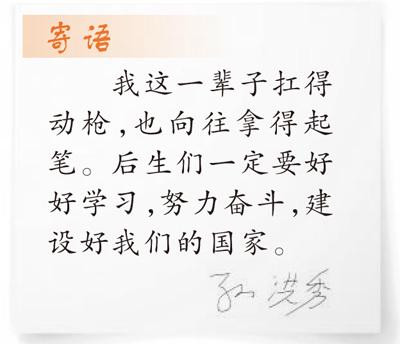 寄语
我这一辈子扛得
动枪,也向往拿得起
笔。后生们一定要好
好学习,努力奋斗,建
设好我们的国家。
孙洪秀